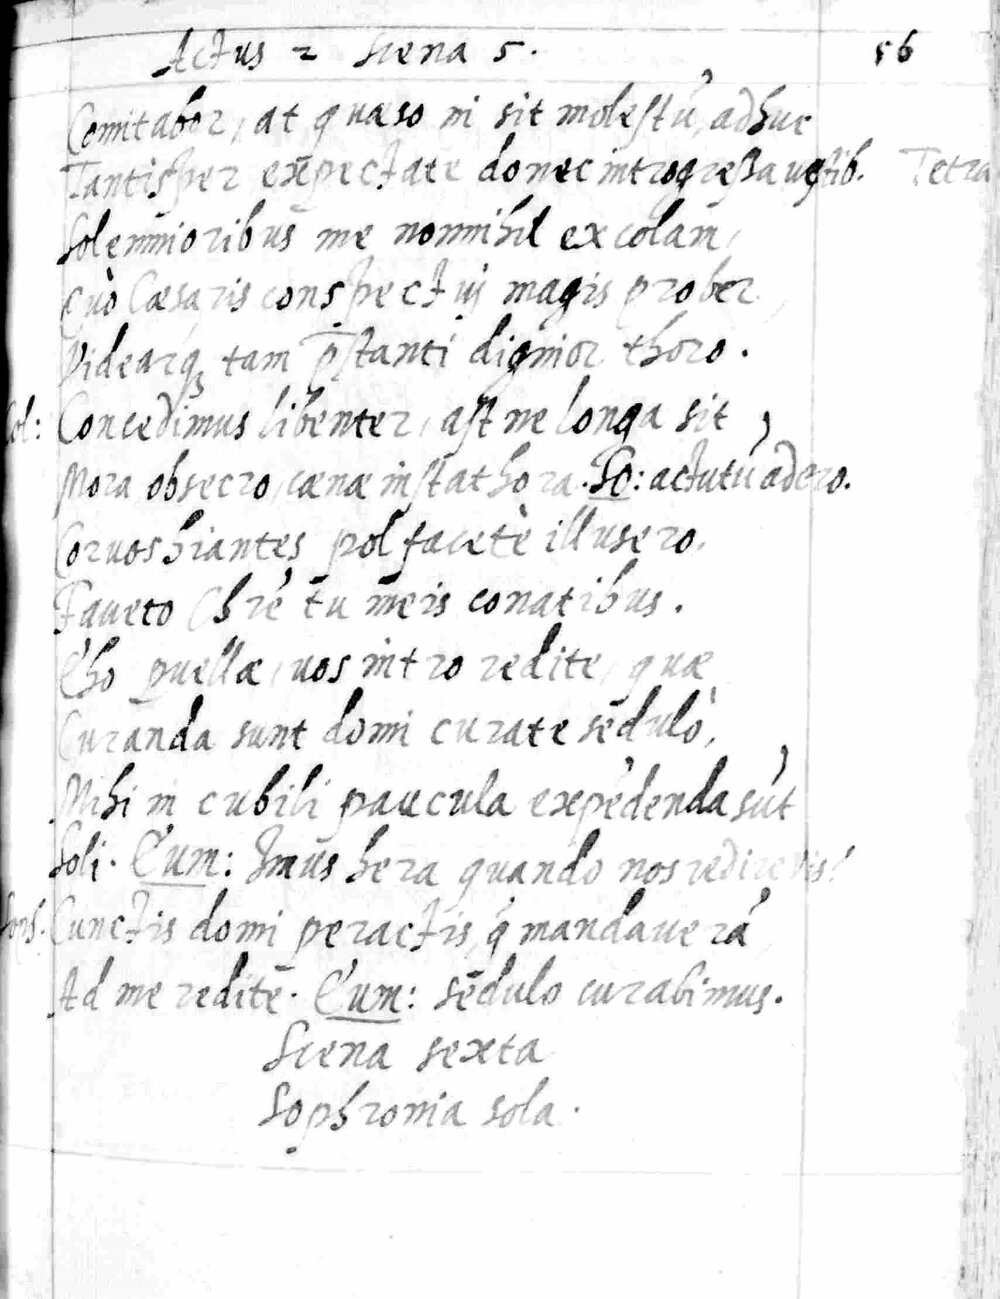 Actus 2 Scena 5. 56
Comitabor, at quaso ni sit molestu', adhuc
Tantisper expectate donec introgressa vestib. Tetra
Solemnioribus me nonnihil excolam,
Quò Cæsaris conspectuj magis prober,
Videarq; tam p̄stanti dignior thoro.
Col: Concedimus libenter, ast ne longa sit
Mora obsecro, cænæ instat hora. So: actutu' adero.
Corvos hiantes pol facetè illusero,
Faveto Chr̄e tu meis conatibus.
Eho puellæ, vos intro redite, quæ
Curanda sunt domi curate sedulò,
Mihi in cubili paucula expedenda su't
Soli. Eum: Imus hera quando nos redire vis?
Soph. Cunctis domi peractis, q' mandavera'
Ad me redite. Eum: sedulo curabimus.
Scena sexta
Sophronia sola.